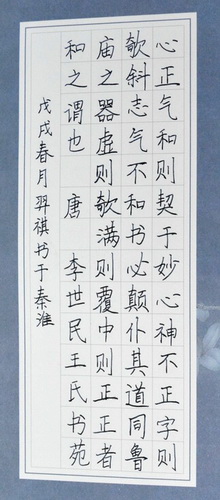 心正气和则契于妙心神不正字则
欹斜志气不和书必颠仆其道同鲁
庙之器虚则欹满则覆中则正正者
和之谓也 唐 李世民王氏书苑
戊戌春月羿祺书于秦淮